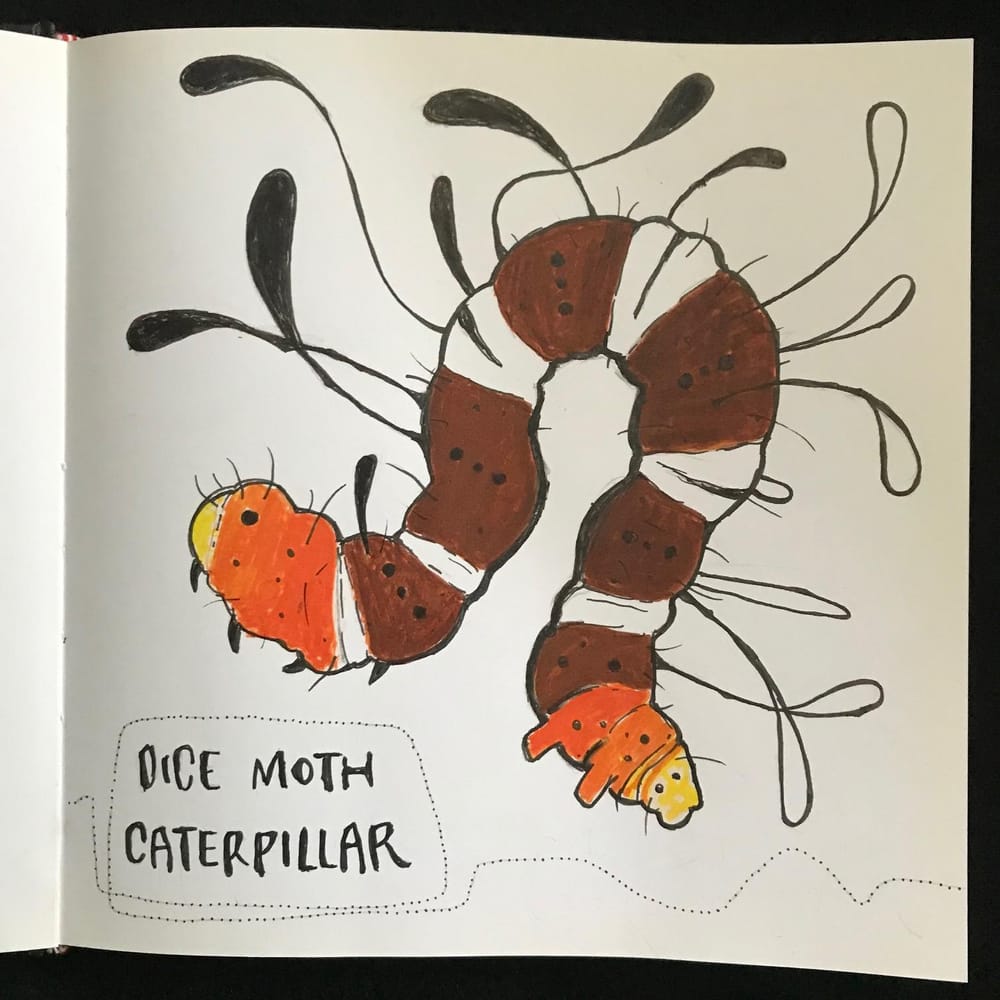 DICE MOTH
CATERPILLAR